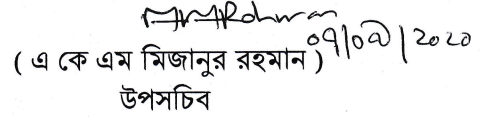 ০৭/০৫/২০২০
( এ কে এম মিজানুর রহমান )
উপসচিব